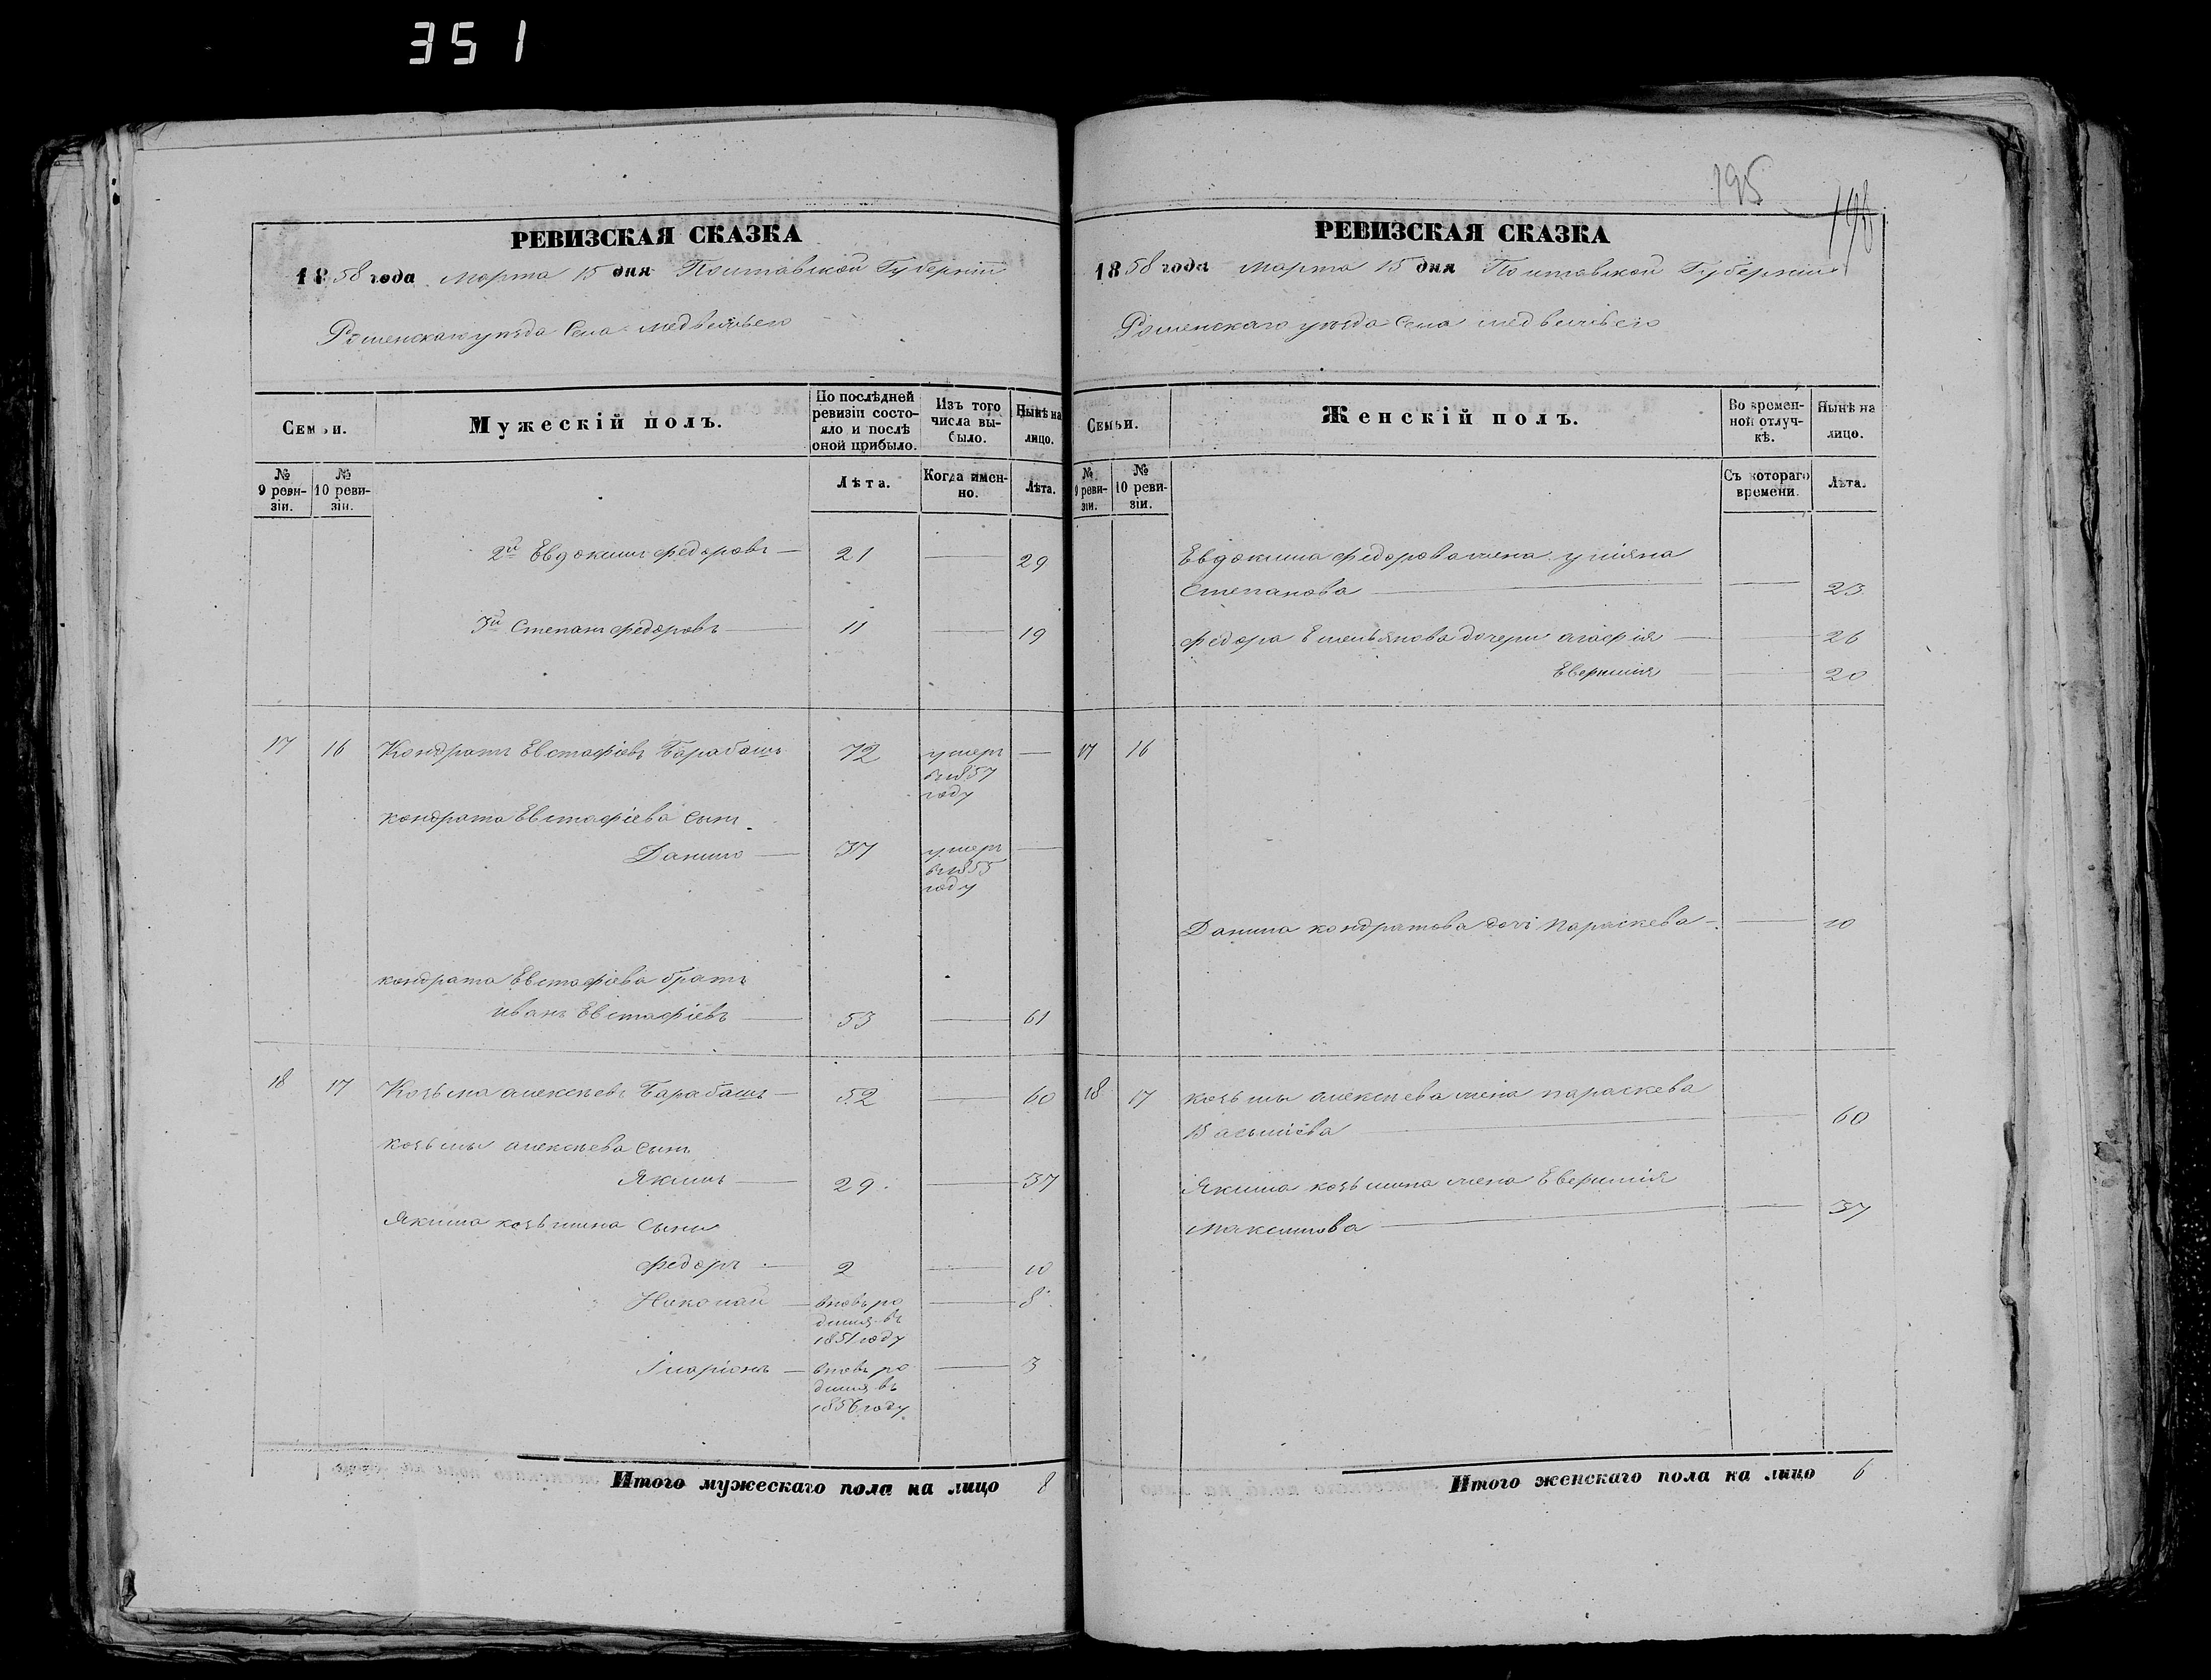 351
195
198
РЕВИЗСКАЯ СКАЗКА
1858 года Марта 15 дня Полтавской Губерніи
Роменскаго уезда Села Медвежьего
Семьи.
Мужескій полъ.
По послѣдней ревизіи состояло и послѣ оной прибыло.
Изъ того числа выбыло.
Нынѣ на лицо.
№ 9 ревизіи.
№ 10 ревизіи.
Лѣта.
Когда именно.
Лѣта.
2й Евдокимъ Федоровъ — 21 — 29
3й Степанъ Федоровъ — 11 — 19
17 16 Кондратъ Евстафіевъ Барабашъ 72 умеръ —
въ 1857
году
Кондрата Евстафіева сынъ
Данило — 37 умеръ —
въ 1855
году
Кондрата Евстафіева братъ
Иванъ Евстафіевъ — 53 — 61
18 17 Козьма Алексеевъ Барабашъ — 52 — 60
Козьмы Алексеева сынъ
Якимъ — 29 — 37
Якима Козьмина сыны
Федоръ — 2 — 10
Николай — вновь ро — 8
дился въ
1851 году
Іларіонъ — вновь ро — 3
дился въ
1856 году
Итого мужескаго пола на лицо 8
РЕВИЗСКАЯ СКАЗКА
1858 года Марта 15 дня Полтавской Губерніи
Роменскаго уезда Села Медвежьего
Семьи.
Женскій полъ.
Во временной отлучкѣ.
Нынѣ на лицо.
№ 9 ревизіи.
№ 10 ревизіи.
Съ котораго времени.
Лѣта.
Евдокима Федорова жена Уліяна
Степанова — — 23
Федора Емельянова дочери Агафія — — 26
Евфимія — — 20
17 16
Данила Кондратова дочь Параскева — — 10
18 17 Козьмы Алексеева жена Параскева
Васильева — — 60
Якима Козьмина жена Евфимія
Максимова — — 37
Итого женскаго пола на лицо 6